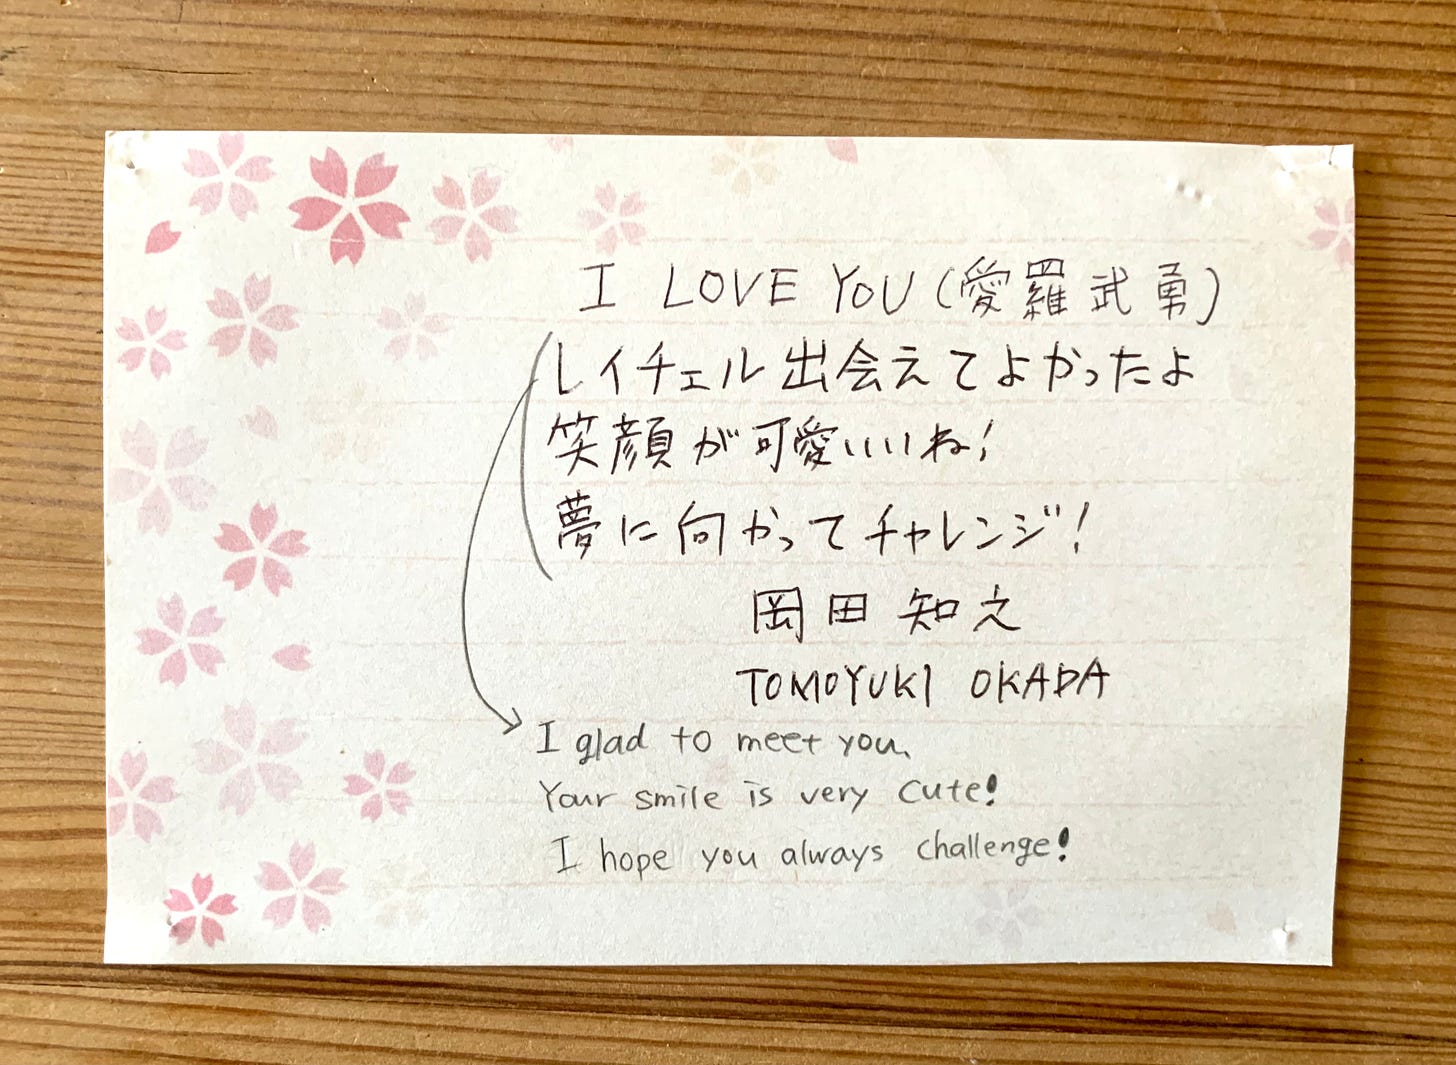 I LOVE YOU (愛羅武勇)
レイチェル出会えてよかったよ
笑顔が可愛いいね!
夢に向かってチャレンジ!
岡田 知之
TOMOYUKI OKADA
I glad to meet you,
Your smile is very cute!
I hope you always challenge!